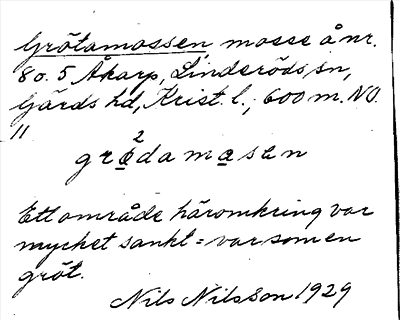 Grötamossen mosse å nr.
80.5 Åkarp, Linderöds sn,
Gärds hd, Krist. l.; 600 m. NO.
11
2
grödamasen
Ett område häromkring var
mycket sankt = var som en
gröt.
Nils Nilsson 1929